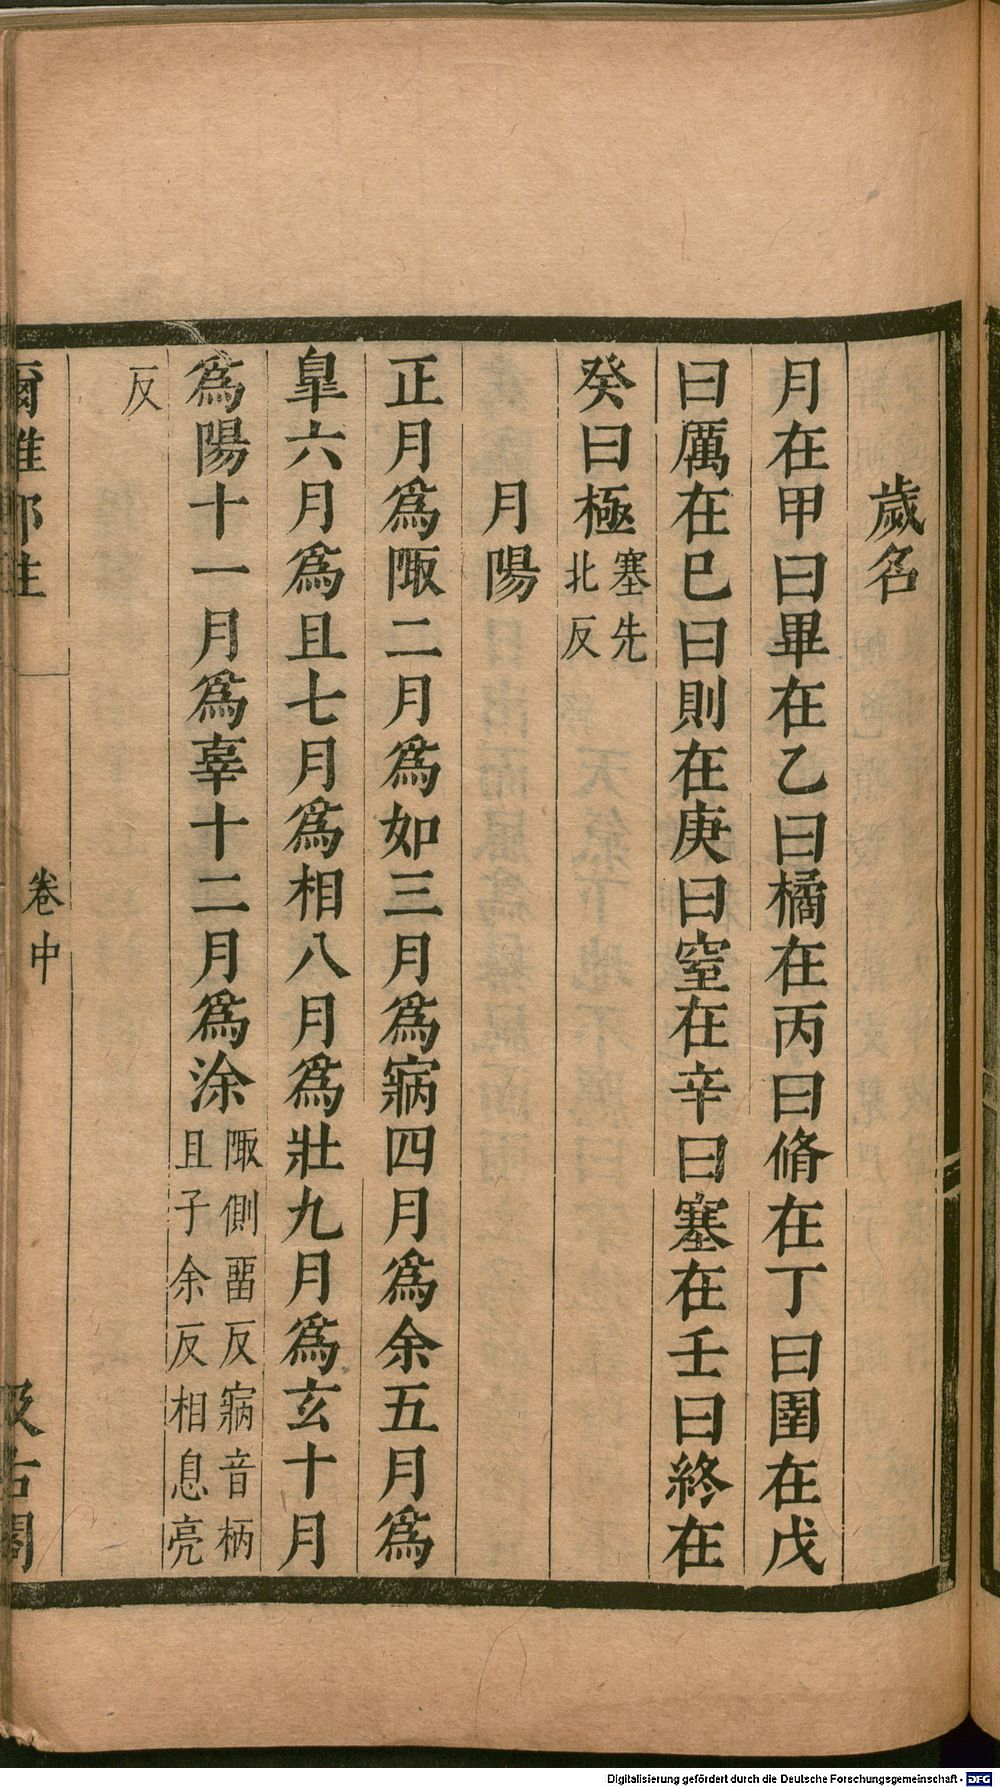 歲名
月在甲曰畢在乙曰橘在丙曰脩在丁曰圉在戊
曰厲在巳曰則在庚曰窒在辛曰塞在壬曰終在
癸曰極塞先
北反
月陽
正月為陬二月為如三月為寎四月為余五月為
皐六月為且七月為相八月為壯九月為玄十月
為陽十一月為辜十二月為涂陬側畱反寎音柄
且子余反相息亮
反
爾雅郭注
卷中
汲古閣
Digitalisierung gefördert durch die Deutsche Forschungsgemeinschaft - DFG